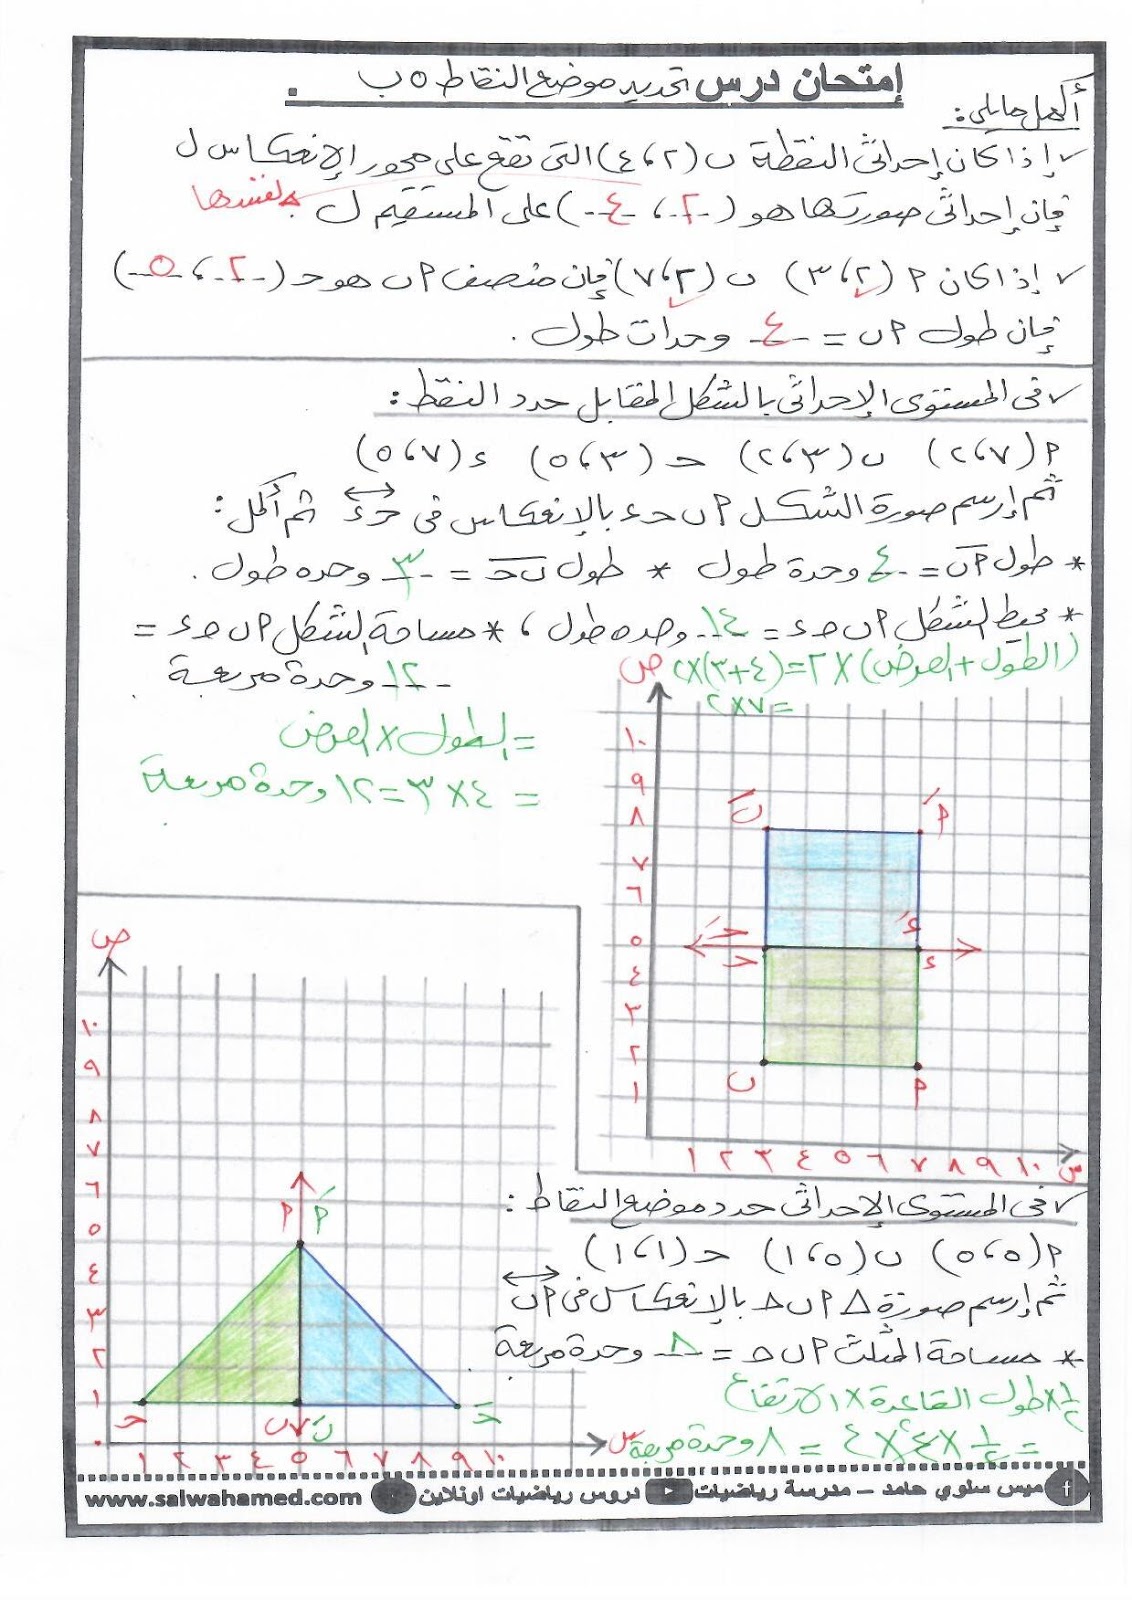 إمتحان درس تحديد موضع النقاط ٥ ب .
أكمل مايلى:
✓ إذا كان إحداثى النقطة ب (٢، ٤) التى تقع على محور الإنعكاس ل
فإن إحداثى صورتها هو (-٢-، -٤-) على المستقيم ل نفسها
✓ إذا كان م (٢، ٣) ب (٢، ٧) فإن منتصف م ب هو حـ (-٢-، -٥-)
فإن طول م ب = -٤- وحدات طول .
✓ فى المستوى الإحداثى بالشكل المقابل حدد النقط:
م (٧، ٢) ب (٣، ٢) حـ (٣، ٥) ء (٧، ٥)
ثم إرسم صورة الشكل م ب حـ ء بالإنعكاس فى حـ ء ثم أكمل:
* طول م ب = -٤- وحدة طول * طول ب حـ = -٣- وحده طول .
* محيط الشكل م ب حـ ء = ١٤ وحده طول ، * مساحة الشكل م ب حـ ء =
(الطول + العرض) × ٢ = (٤+٣)×٢
-١٢- وحدة مربعة .
= ٧×٢
= الطول × العرض
= ٤ × ٣ = ١٢ وحدة مربعة
ص
١٠
٩
٨
٧
٦
٥
٤
٣
٢
١
بَ مَ
حـَ ءَ
حـ ء
ب م
١ ٢ ٣ ٤ ٥ ٦ ٧ ٨ ٩ ١٠ س
✓ فى المستوى الإحداثى حدد موضع النقاط:
م (٥، ٥) ب (٥، ١) حـ (١، ١)
ثم إرسم صورة △ م ب حـ بالإنعكاس فى م ب
* مساحة المثلث م ب حـ = -٨- وحدة مربعة
١/٢ × طول القاعدة × الارتفاع
= ١/٢ × ٤ × ٤ = ٨ وحدة مربعة
٢
ص
١٠
٩
٨
٧
٦
٥
٤
٣
٢
١
٠
م مَ
حـ ب بَ حـَ
١ ٢ ٣ ٤ ٥ ٦ ٧ ٨ ٩ ١٠ س
ميس سلوي حامد – مدرسة رياضيات دروس رياضيات اونلاين www.salwahamed.com